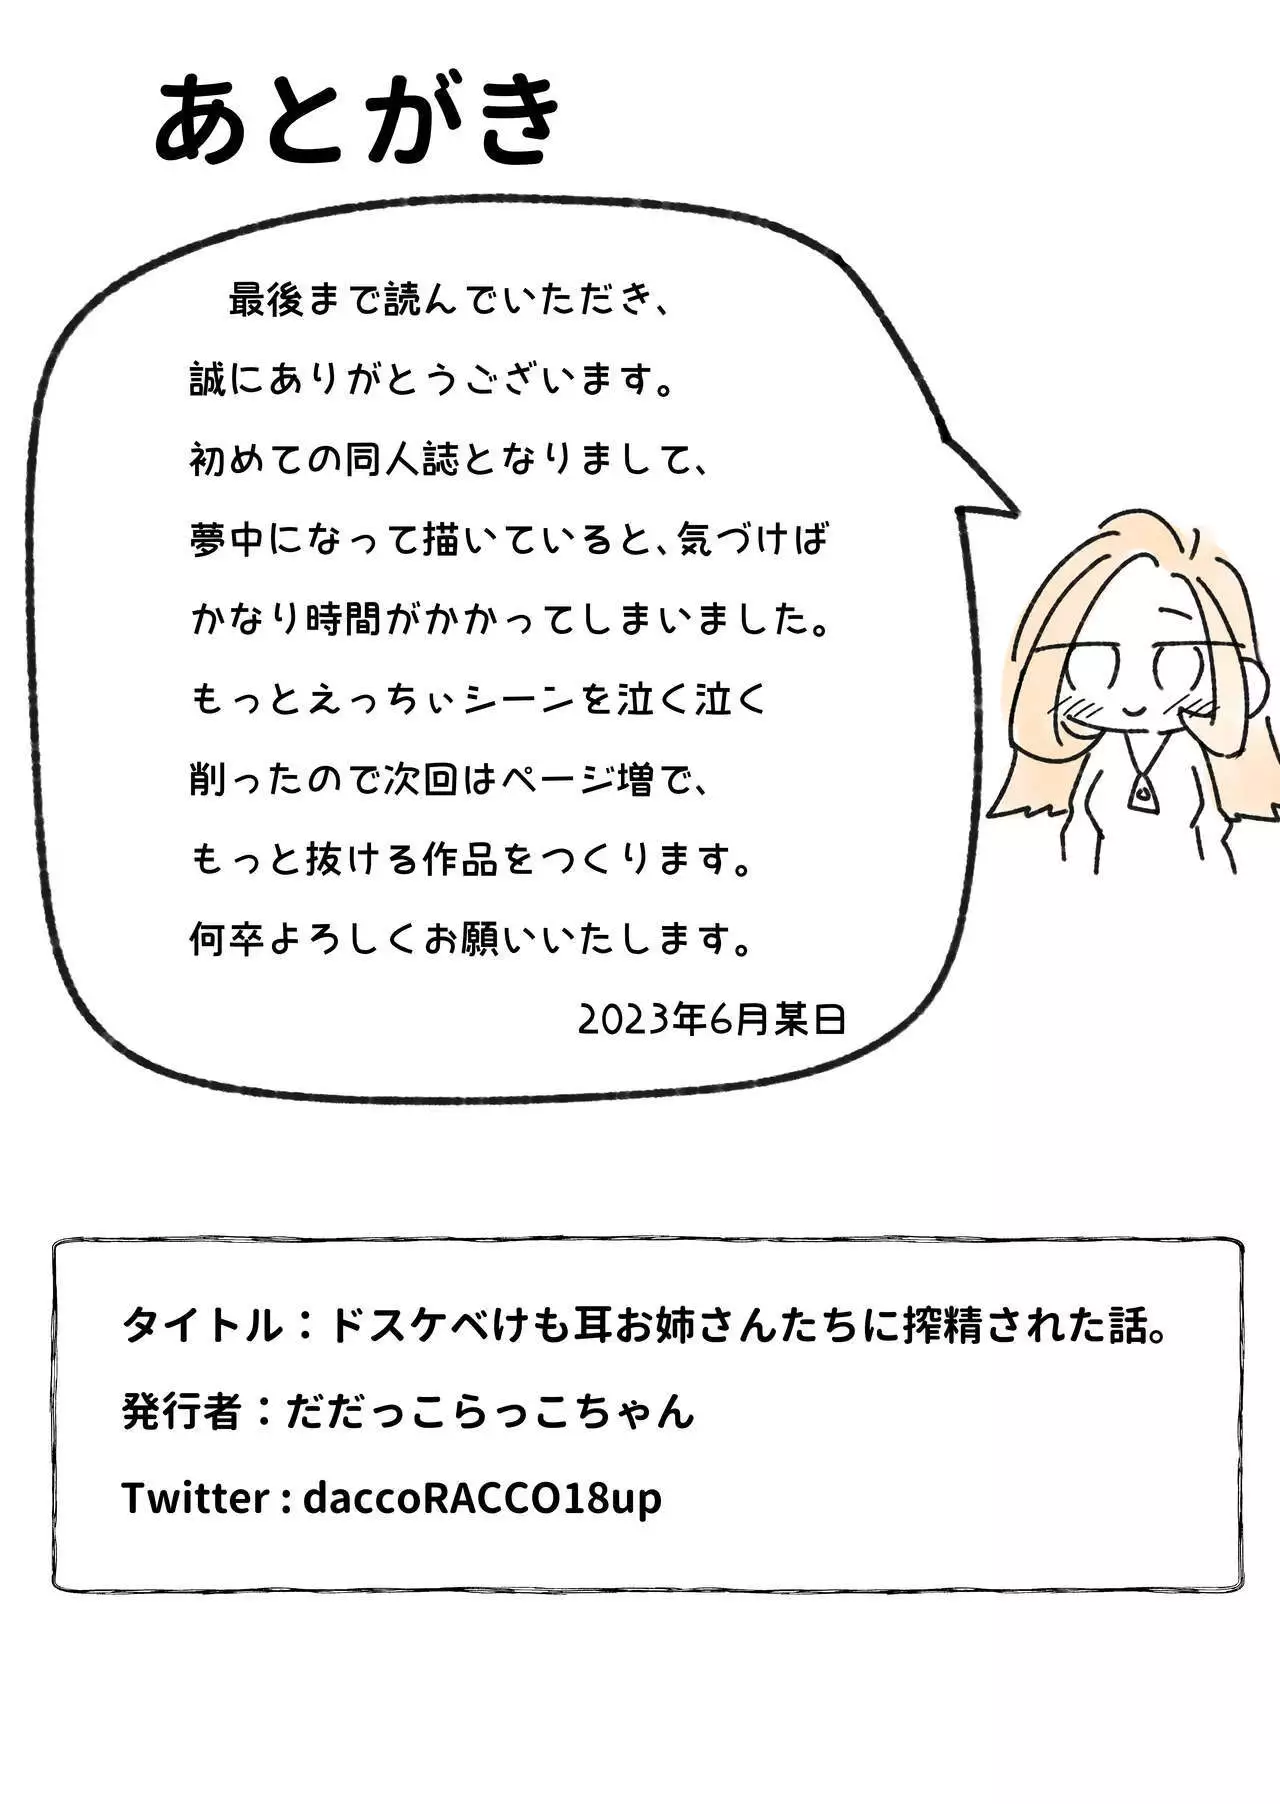 あとがき
最後まで読んでいただき、
誠にありがとうございます。
初めての同人誌となりまして、
夢中になって描いていると、気づけば
かなり時間がかかってしまいました。
もっとえっちぃシーンを泣く泣く
削ったので次回はページ増で、
もっと抜ける作品をつくります。
何卒よろしくお願いいたします。
2023年6月某日
タイトル：ドスケベけも耳お姉さんたちに搾精された話。
発行者：だだっこらっこちゃん
Twitter : daccoRACCO18up